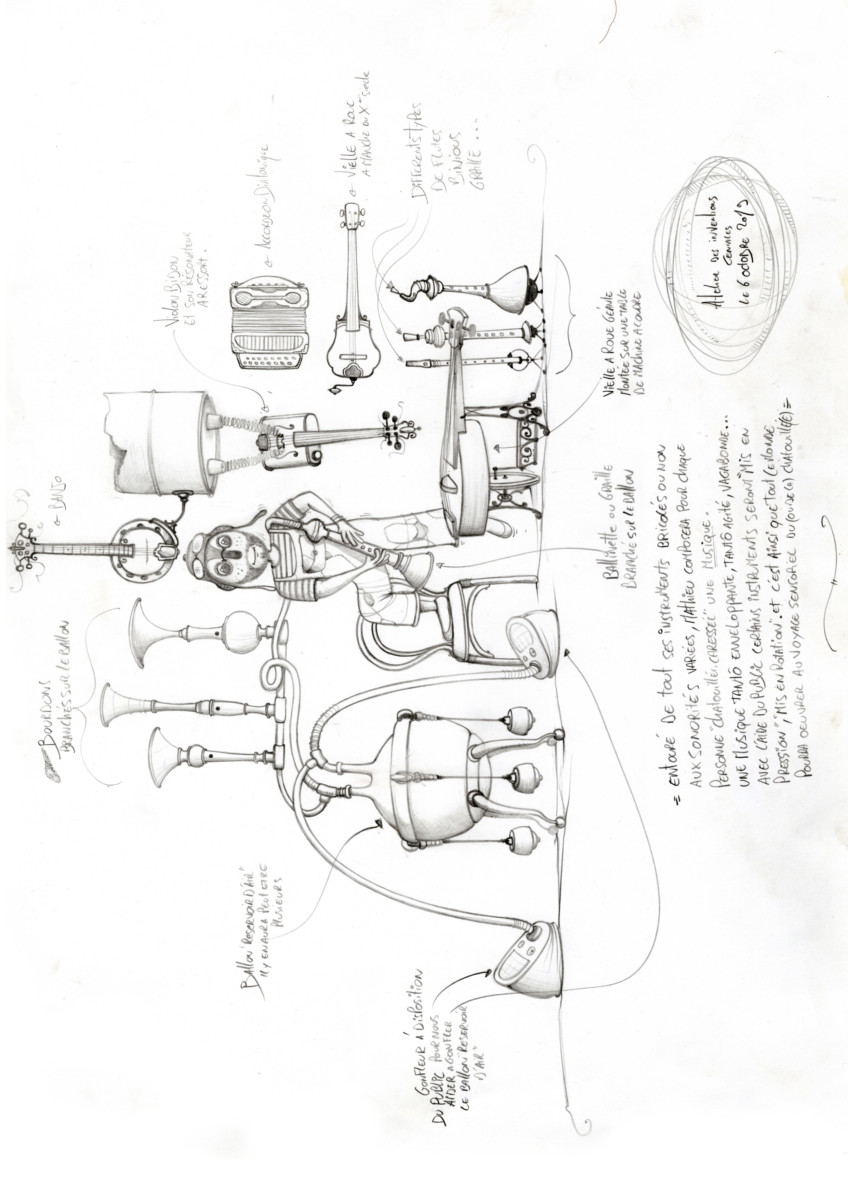 BOURDONS
BRANCHÉS SUR LE BALLON
BANJO
VIOLON BIDON
ET SON RESONATEUR
A RESSORT.
ACCORDEON DIATONIQUE
VIELLE A ROUE
A MANCHE DU X SIECLE
DIFFERENTS TYPES
DE FLUTES
BINIOUS
GRAÏLLE...
BALLON "RESERVOIR D'AIR"
IL Y EN AURA PEUT ETRE
PLUSIEURS
GONFLEUR À DISPOSITION
DU PUBLIC POUR NOUS
AIDER A GONFLER
LE BALLON "RESERVOIR
D'AIR"
OU GRAÏLLE
BRANCHÉ SUR LE BALLON
VIELLE A ROUE GÉANTE
MONTÉE SUR UNE TABLE
DE MACHINE A COUDRE
= ENTOURÉ DE TOUT SES INSTRUMENTS BRICOLÉS OU NON
AUX SONORITÉS VARIÉES, MATHIEU COMPOSERA POUR CHAQUE
PERSONNE "CHATOUILLÉE, CARESSÉE" UNE MUSIQUE.
UNE MUSIQUE TANTÔ ENVELOPPANTE, TANTÔ AGITÉ, VAGABONDE...
AVEC L'AIRE DU PUBLIC CERTAINS INSTRUMENTS SERONT "MIS EN
PRESSION", "MIS EN ROTATION". ET C'EST AINSI QUE TOUT LE MONDE
POURRA OEUVRER AU VOYAGE SENSORIEL DU (OU DE LA) CHATOUILLÉ(E) =
Atelier des inventions
LE 6 OCTOBRE 2019